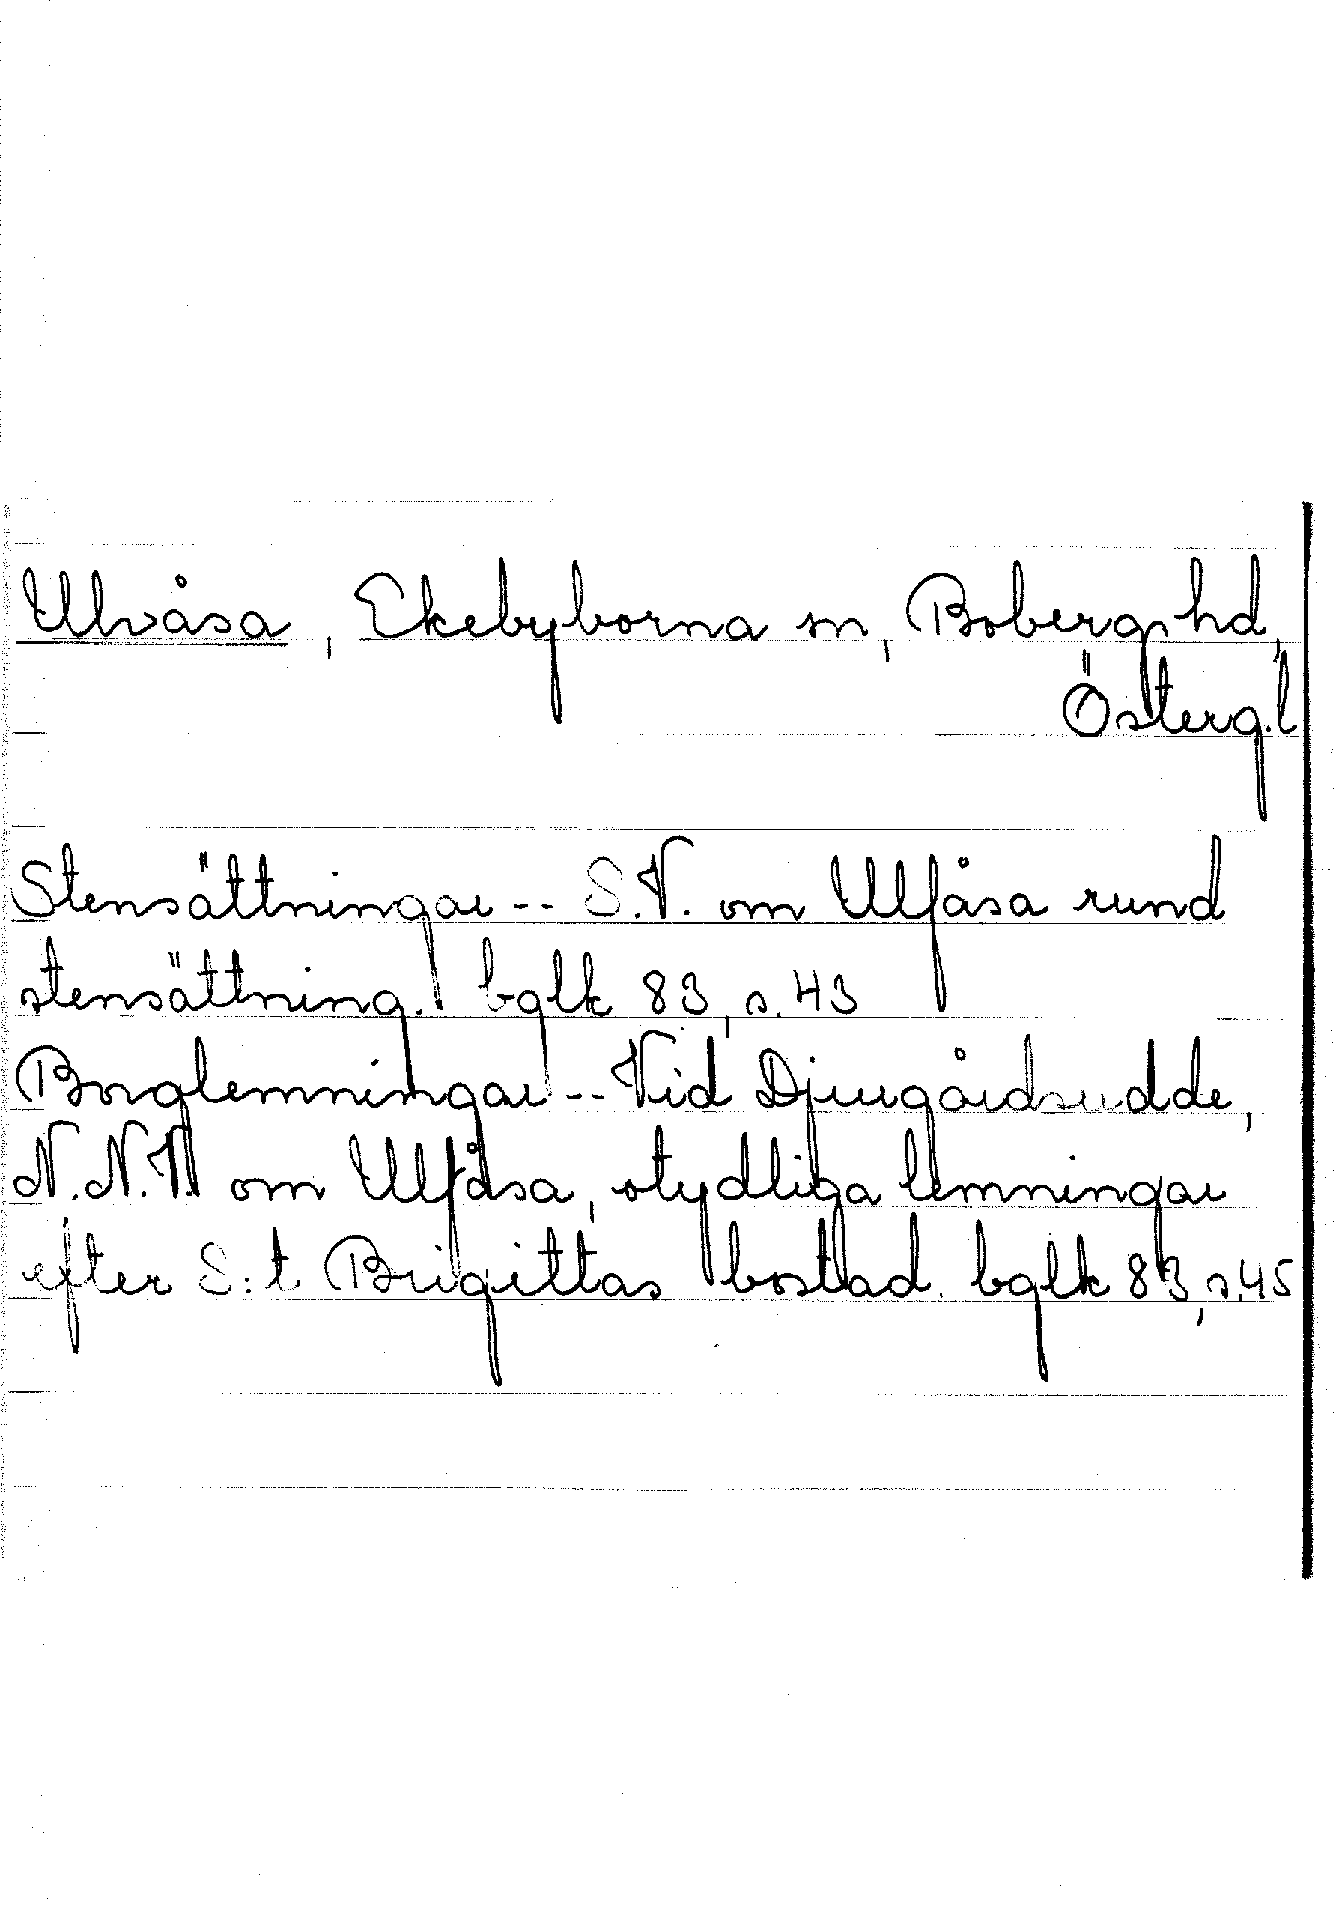 Ulvåsa, Ekebyborna sn, Bobergs hd,
Österg.l
Stensättningar -- S.V. om Ulfåsa rund
stensättning. bglk 83, s.43
Borglemningar -- Vid Djurgårdsudde,
N.N.V. om Ulfåsa, otydliga lemningar
efter S:t Brigittas bostad. bglk 83, s.45